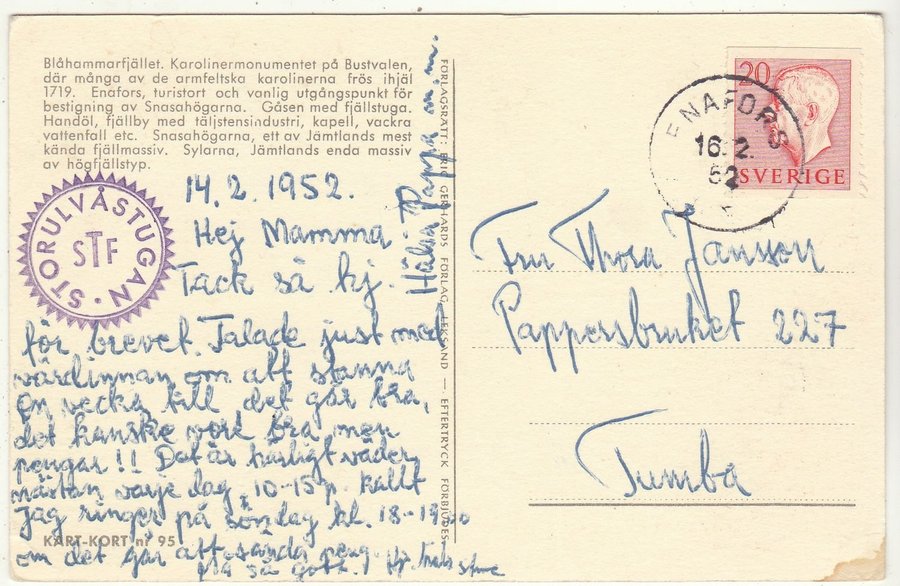 Blåhammarfjället. Karolinermonumentet på Bustvalen,
där många av de armfeltska karolinerna frös ihjäl
1719. Enafors, turistort och vanlig utgångspunkt för
bestigning av Snasahögarna. Gåsen med fjällstuga.
Handöl, fjällby med täljstensindustri, kapell, vackra
vattenfall etc. Snasahögarna, ett av Jämtlands mest
kända fjällmassiv. Sylarna, Jämtlands enda massiv
av högfjällstyp.
STORULVÅSTUGAN
STF
14.2.1952.
Hej Mamma
Tack så hj.
för brevet. Talade just med
värdinnan om att stanna
en vecka till det går bra,
det kanske vore bra men
pengar!! Det är härligt väder
nästan varje dag, 10-15 gr. kallt
Jag ringer på söndag kl. 18-19
om det går att sända peng.
må så gott.! Hj.
KART-KORT nr 95
Hälsa Pappa m.m.
FÖRLAGSRÄTT: GERHARDS FÖRLAG, LEKSAND — EFTERTRYCK FÖRBJUDES
20
SVERIGE
ENAFORS
16.2.
52
Fru Thora Jansson
Pappersbruket 227
Tumba